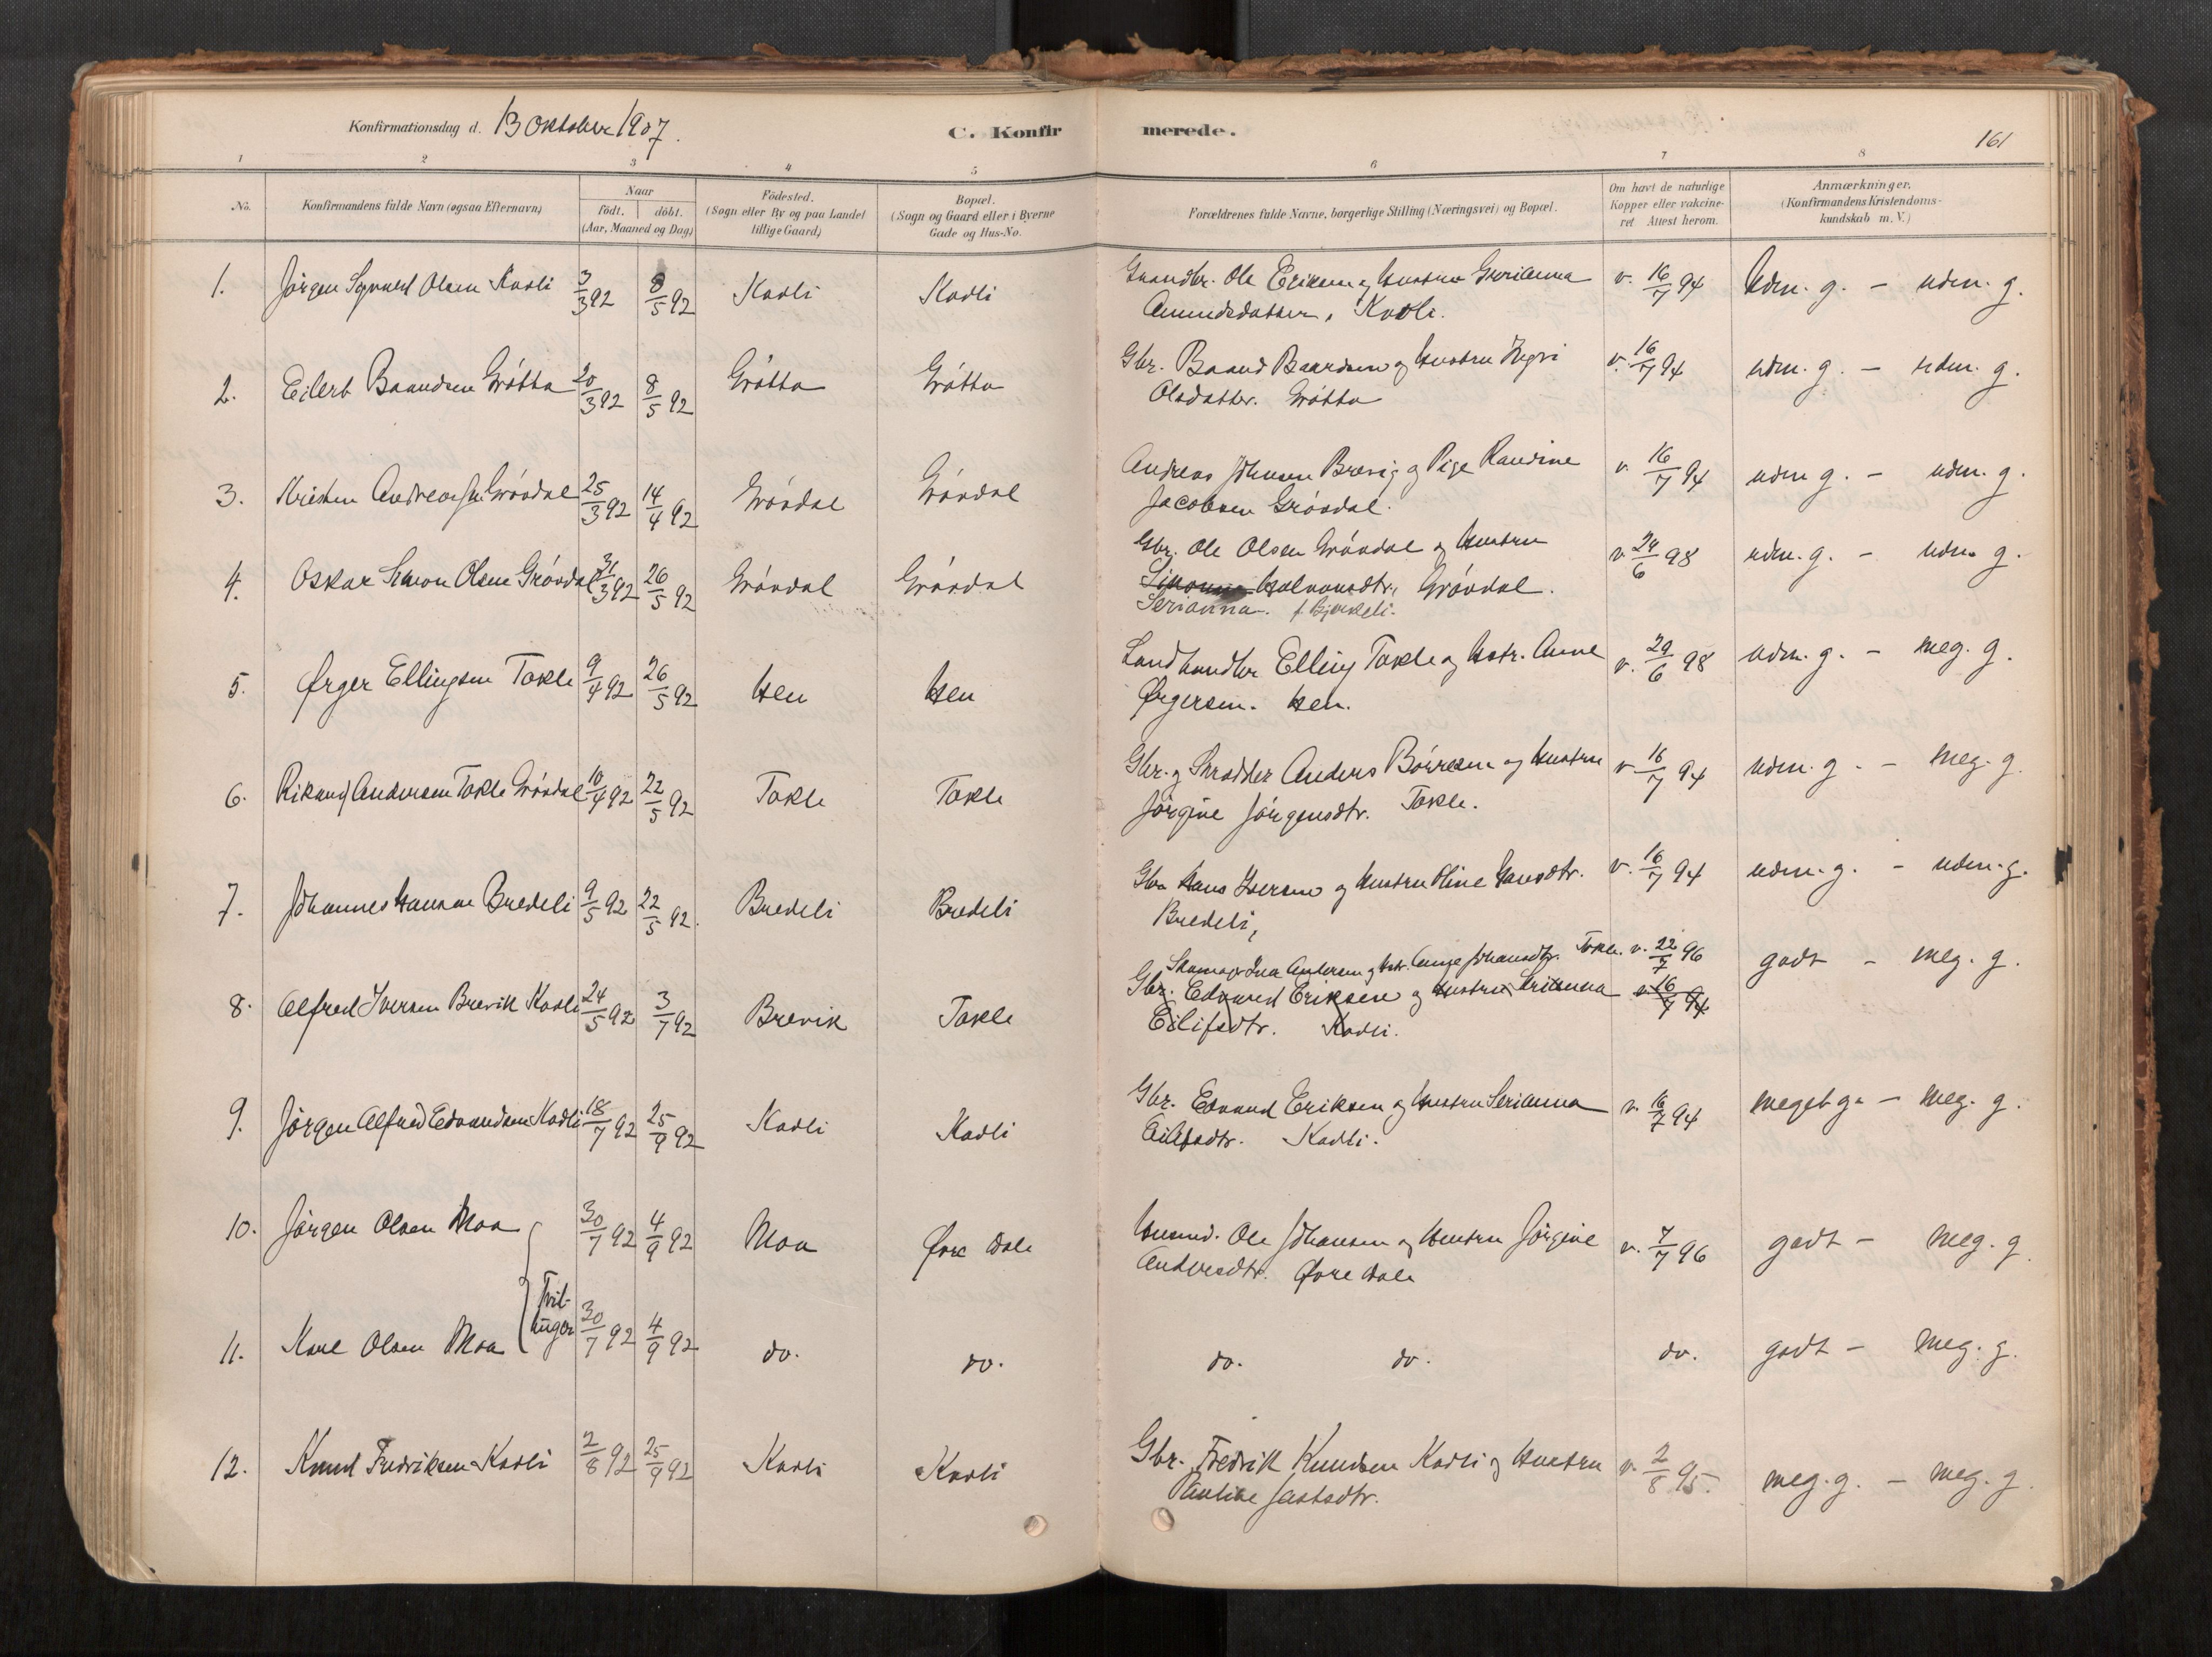 Konfirmationsdag d. 13 Oktober 1907.
C. Konfirmerede.
161
1 2 3 4 5 6 7 8
No.
Konfirmandens fulde Navn (ogsaa Efternavn)
Naar
födt. döbt.
(Aar, Maaned og Dag)
Födested.
(Sogn eller By og paa Landet
tillige Gaard)
Bopæl.
(Sogn og Gaard eller i Byerne
Gade og Hus-No.
Forældrenes fulde Navne, borgerlige Stilling (Næringsvei) og Bopæl.
Om havt de naturlige
Kopper eller vakcine-
ret Attest herom.
Anmærkninger.
(Konfirmandens Kristendoms-
kundskab m. V.)
1. Jörgen Olsen Kavli 3/3 92 8/5 92 Kavli Kavli Ole Eriksen og Hustru v. 16/7 94 Udm. g. - udm. g.
Amundsdatter, Kavli.
2. Eilert Baardsen Gråtta 20/3 92 8/5 92 Gråtta Gråtta Gbr. Baard Baardsen og Hustru v. 16/7 94 udm. g. - udm. g.
Olsdatter. Gråtta
3. Kristen Gróvdal 25/3 92 14/4 92 Gróvdal Gróvdal Andreas Johnsen Brevig og Pige Randine v. 16/7 94 udm g. - udm. g.
Jacobsen Gróvdal.
4. Oskar Simon Olsen Gróvdal 31/3 92 26/5 92 Gróvdal Gróvdal Gbr. Ole Olsen Gróvdal og Hustru v. 24/6 98 udm. g. - udm. g.
Halvorsdtr, Gróvdal.
Serianna. f. Bjerkeli.
5. Ørger Ellingsen Tokle 9/4 92 26/5 92 Hen Hen Landhandler Elling Tokle og Hstr. Anne v. 29/6 98 udm. g. - meg. g.
Ørgersen. Hen.
6. Rikard Andersen Tokle Gróvdal 10/4 92 22/5 92 Tokle Tokle Gbr. og Skrædder Anders Börresen og Hustru v. 16/7 94 udm. g. - meg. g.
Jörgine Jörgensdtr. Tokle.
7. Johannes Hansen Bredeli 9/5 92 22/5 92. Bredeli Bredeli Gbr Hans Iversen og Hustru Oline Hansdtr. v. 16/7 94 udm. g. - udm. g.
Bredeli,
Skomager Iver Andersen og Hstr. Johansdtr. Tokle. v. 22/7 96 godt - meg. g.
8. Alfred Iversen Brevik Kavli 24/5 92 3/7 92 Brevik Tokle Gbr. Edvard Eriksen og Hustru Serianna v. 16/7 94
Eilifsdtr. Kavli.
9. Jörgen Alfred Edvardsen Kavli 18/7 92 25/9 92 Kavli Kavli Gbr. Edvard Eriksen og Hustru Serianna v. 16/7 94 meget g. - meg. g.
Eilifsdtr. Kavli.
10. Jörgen Olsen Moa 30/7 92 4/9 92 Moa Øvre Dale Husmd. Ole Johansen og Hustru Jörgine v. 7/7 96 godt - meg. g
Andersdtr. Øvre Dale
Tvil-
linger
11. Karl Olsen Moa 30/7 92 4/9 92 do. do. do. do. do. godt - meg. g.
12. Knud Fredriksen Kavli 2/8 92 25/9 92 Kavli Kavli Gbr. Fredrik Knudsen Kavli og Hustru v. 2/8 95. meg. g. - meg. g.
Pauline Jastsdtr.